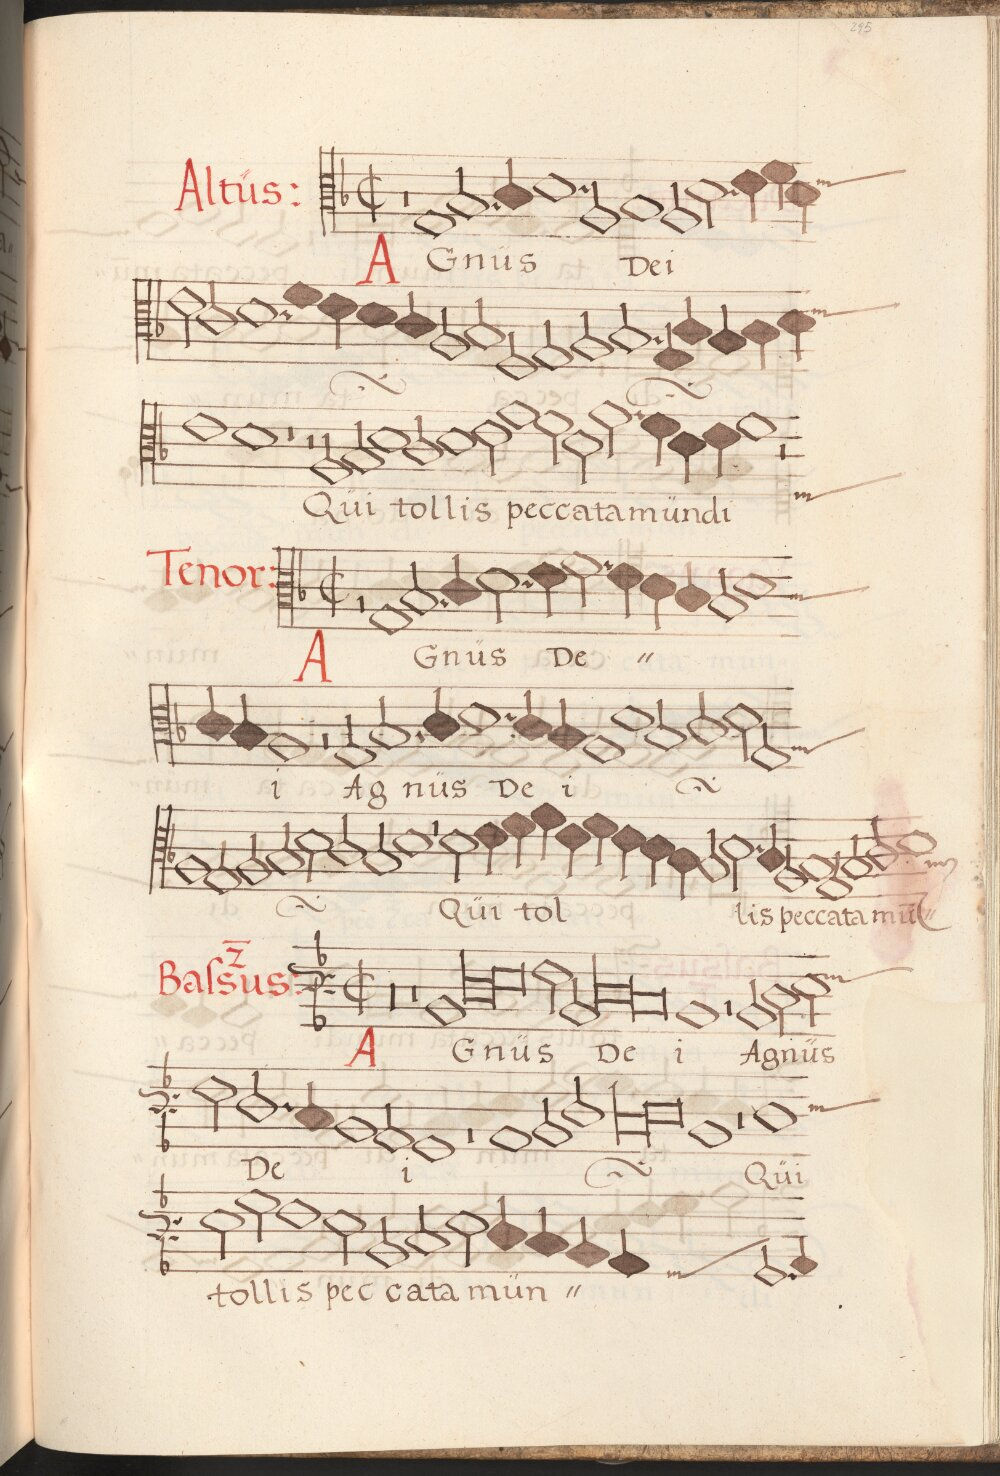 295
Altüs:
A Gnüs Dei
Qüi tollis peccata mündi
Tenor:
A Gnüs De "
i Agnüs De i
Qüi tol lis peccata mü "
Balsz̄us:
A Gnüs De i Agnüs
De i Qüi
tollis peccata mün "